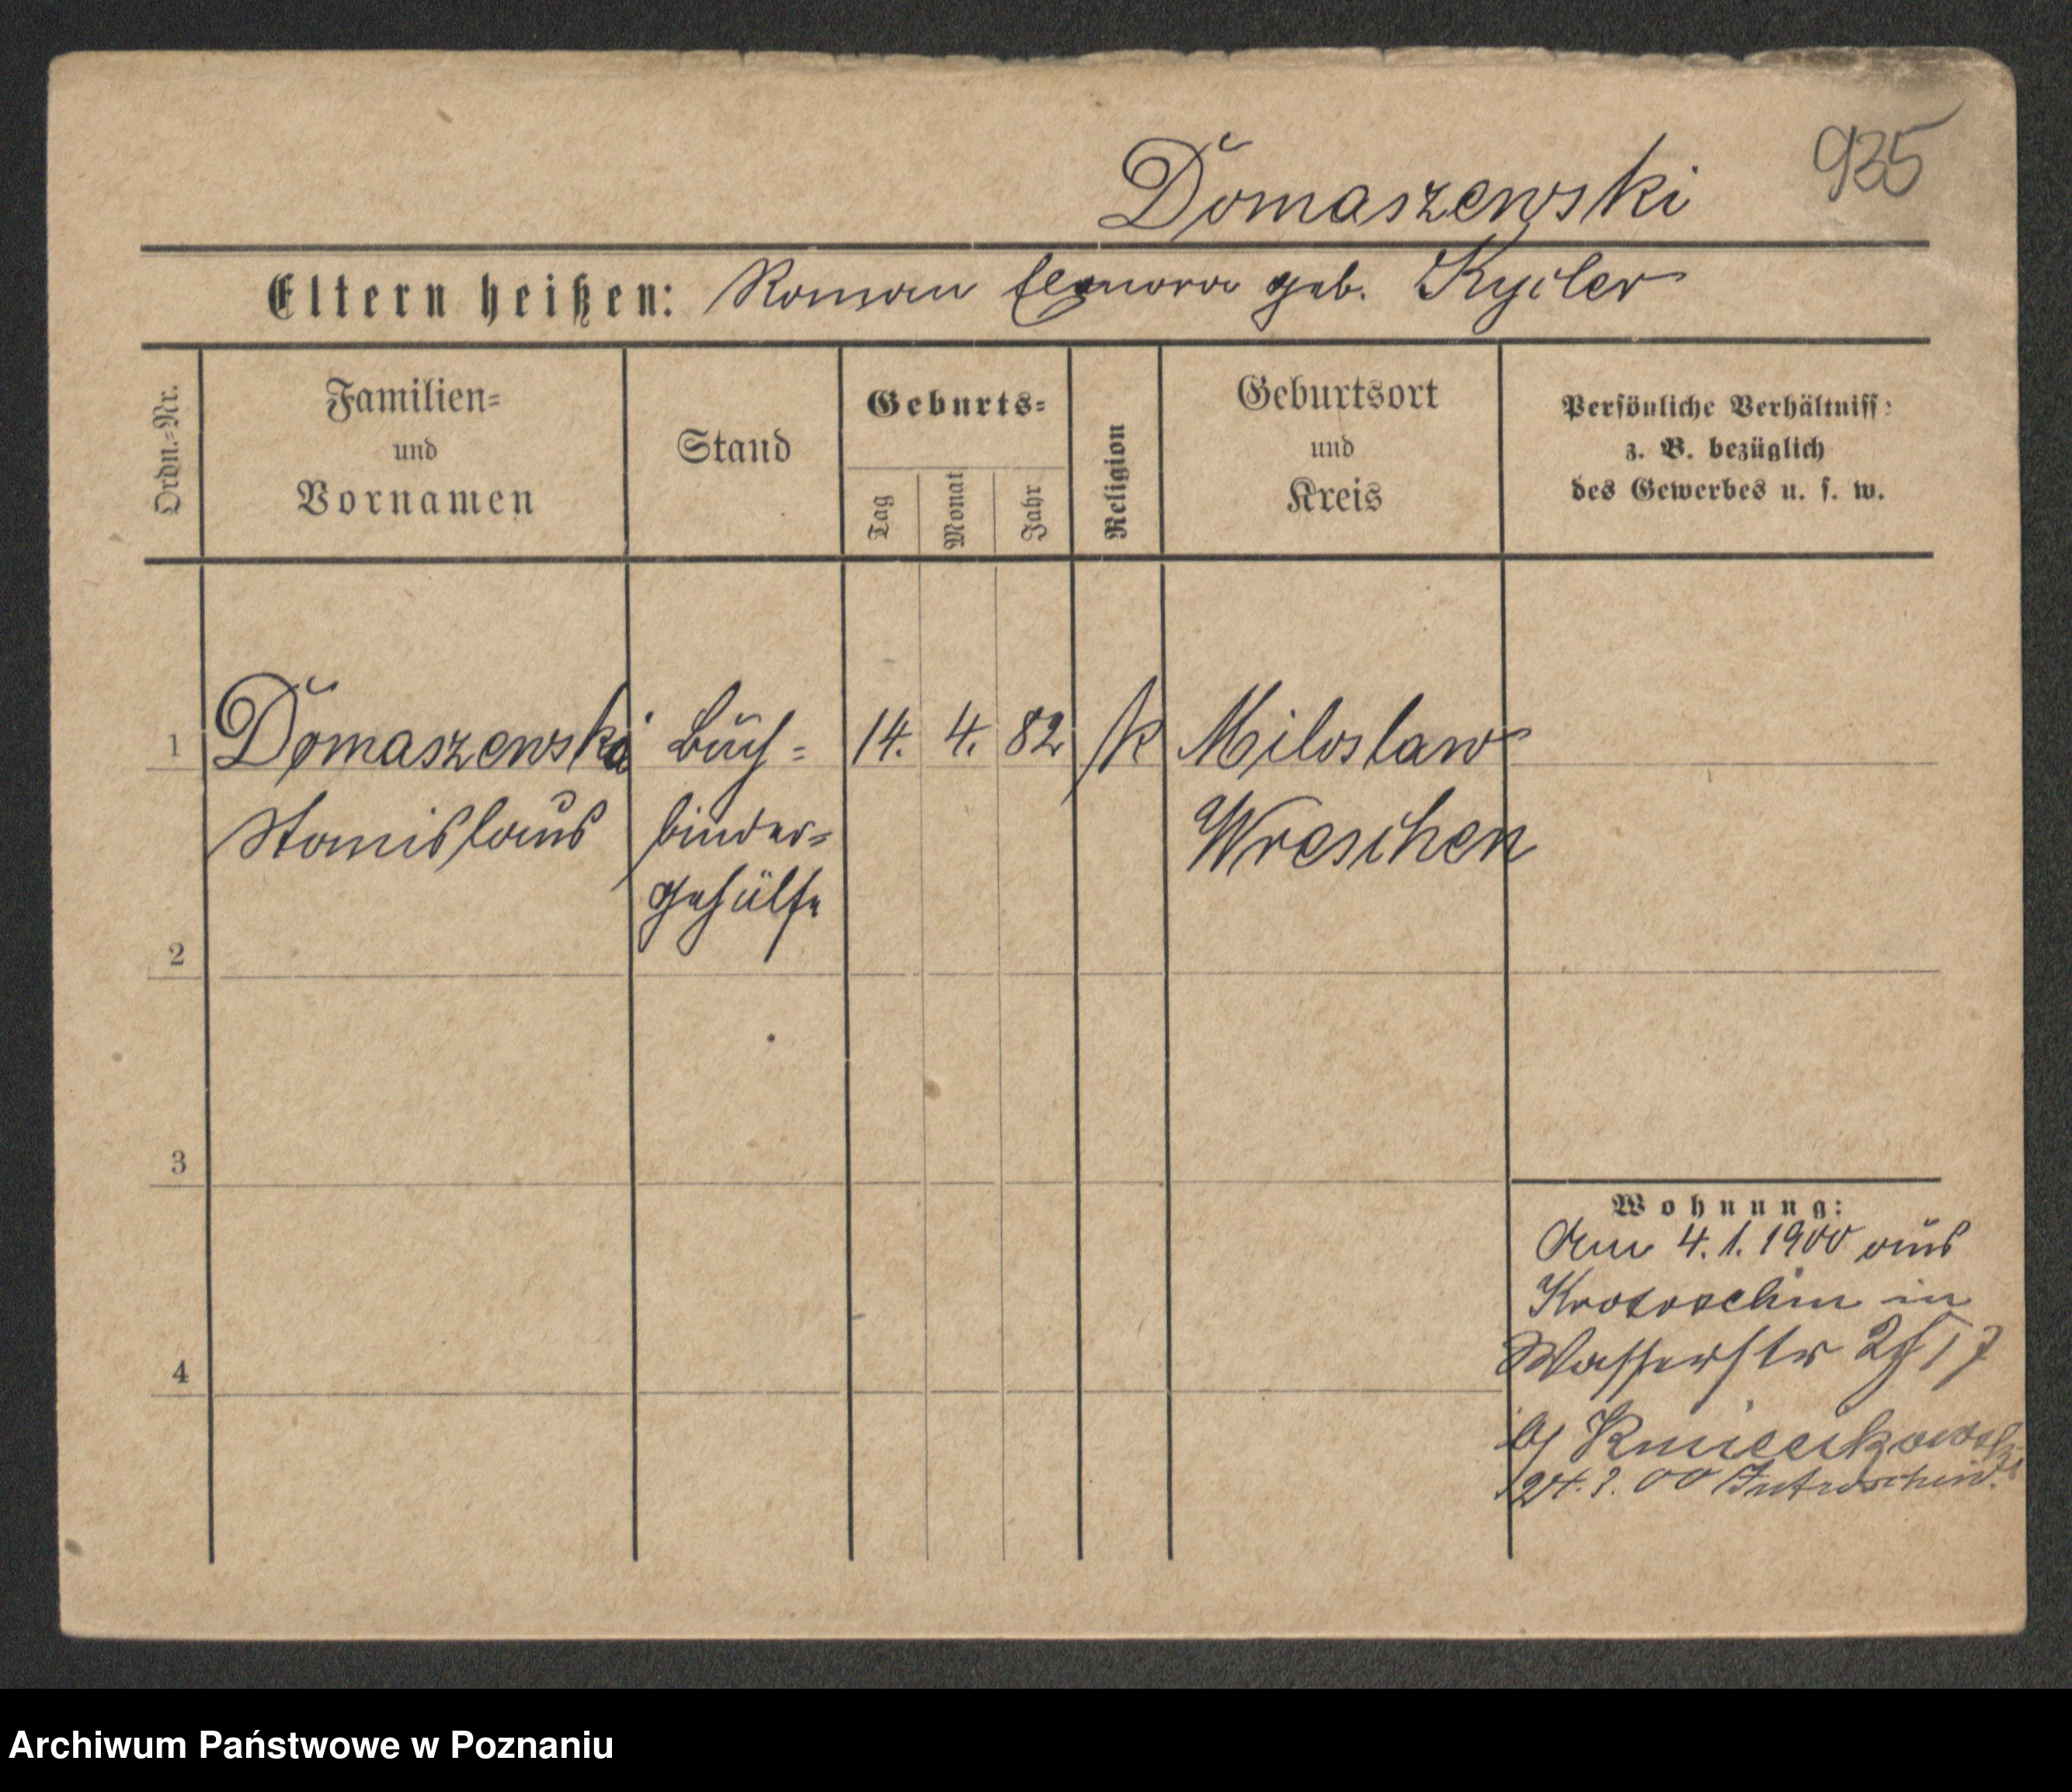 935
Domaszewski
Eltern heißen: Roman Eleonora geb.
Ordn.=Nr.
Familien=
und
Vornamen
Stand
Geburts=
Tag
Monat
Jahr
Religion
Geburtsort
und
Kreis
Persönliche Verhältnisse
z. B. bezüglich
des Gewerbes u. s. w.
1 Domaszewski Buch= 14. 4. 82 k Miloslaw
Stanislaus binder= Wreschen
gehülfe
2
3
4
Wohnung:
Am 4. 1. 1900 aus
Krotoschin in
Wasserstr
24. 00 Jutroschin.
Archiwum Państwowe w Poznaniu